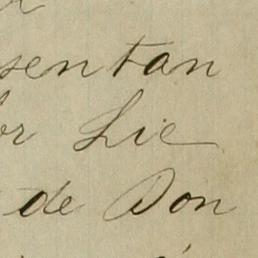 sentan
or Lie
de Don